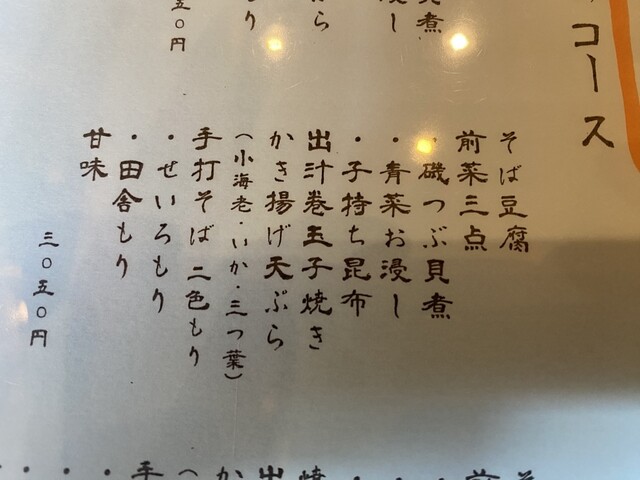 コース
そば豆腐
前菜三点
・磯つぶ貝煮
・青菜お浸し
・子持ち昆布
出汁巻玉子焼き
かき揚げ天ぷら
(小海老・いか・三つ葉)
手打そば 二色もり
・せいろもり
・田舎もり
甘味
三〇五〇円